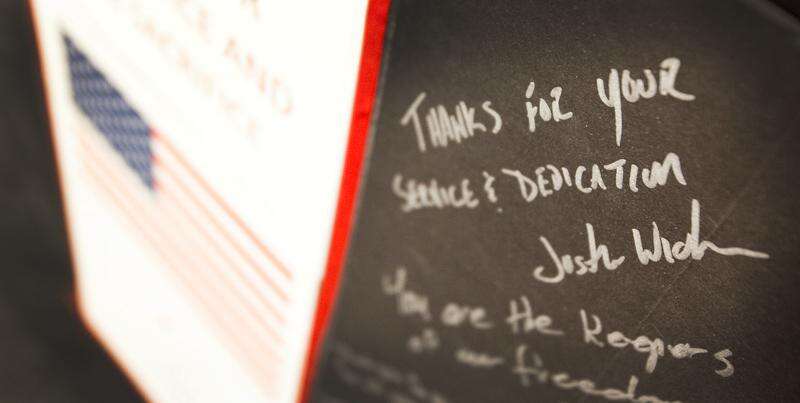 CE AND
THANKS FOR YOUR
SERVICE & DEDICATION
Josh
You are the Keepers
of our freedom